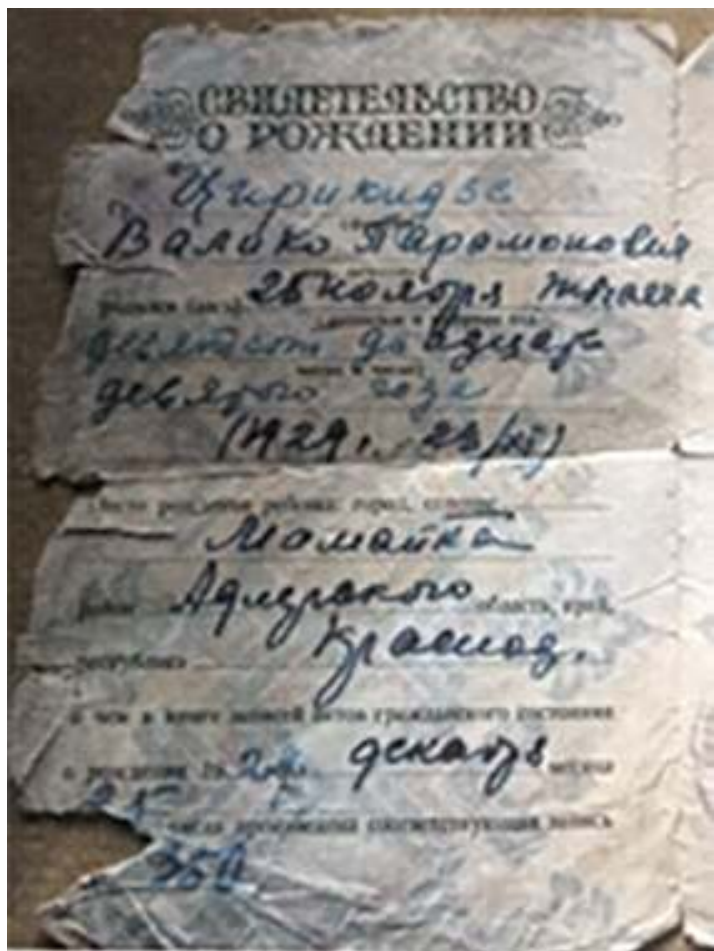 СВИДЕТЕЛЬСТВО
О РОЖДЕНИИ
Цирикидзе
Валико Парамонович
25 ноября тысяча
девятсот двадцать
девятого года
(1929г.
Место рождения ребенка: город, селение
Мамайка
район Адлерского область, край,
республика Краснод.
о чем в книге записей актов гражданского состояния
о рождении 19 29 декабря месяца
25 числа произведена соответствующая запись